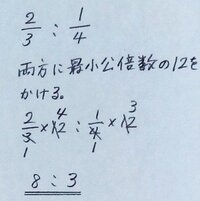 2/3 : 1/4
両方に最小公倍数の12を
かける。
2/3 × 12 4 : 1/4 × 12 3
1 1
8 : 3